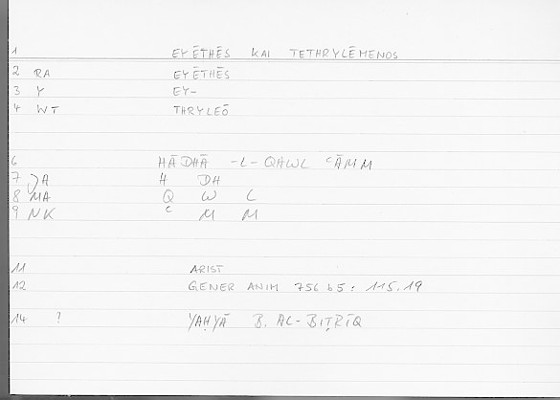 1 EYĒTHĒS KAI TETHRYLĒMENOS
2 RA EYĒTHĒS
3 Y EY-
4 WT THRYLEŌ
6 HĀDHĀ -L-QAWL ʿĀMM
7 JA H DH
8 MA Q W L
9 NK ʿ M M
11 ARIST
12 GENER ANIM 756 b5 : 115.19
14 ? YAḤYĀ B. AL-BIṬRĪQ